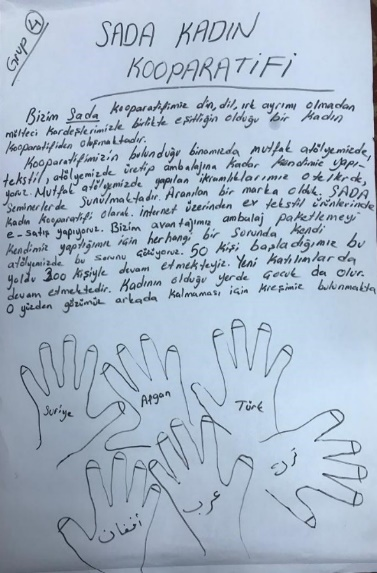 Grup 4
SADA KADIN
KOOPARATİFİ
Bizim Sada kooparatifimiz din, dil, ırk ayrımı olmadan
mülteci kardeşlerimizle birlikte eşitliğin olduğu bir kadın
kooparatifiden oluşmaktadır.
Kooparatifimizin bulunduğu binamızda mutfak atölyemizde,
tekstil, atölyemizde üretip ambalajına kadar kendimiz yapı-
yoruz. Mutfak atölyemizde yapılan ikramlıklarımız otellerde,
seminerlerde sunulmaktadır. Aranılan bir marka olduk. SADA
kadın kooparatifi olarak. İnternet üzerinden ev tekstil ürünlerinde
e-satış yapıyoruz. Bizim avantajımız ambalaj paketlemeyi
kendimiz yaptığımız için herhangi bir sorunda kendi
atölyemizde bu sorunu çözüyoruz. 50 kişi başladığımız bu
yolda 300 kişiyle devam etmekteyiz. Yeni katılımlarda
devam etmektedir. Kadının olduğu yerde çocuk da olur.
O yüzden gözümüz arkada kalmaması için kreşimiz bulunmakta
Suriye
Afgan
Türk
افغان
عرب